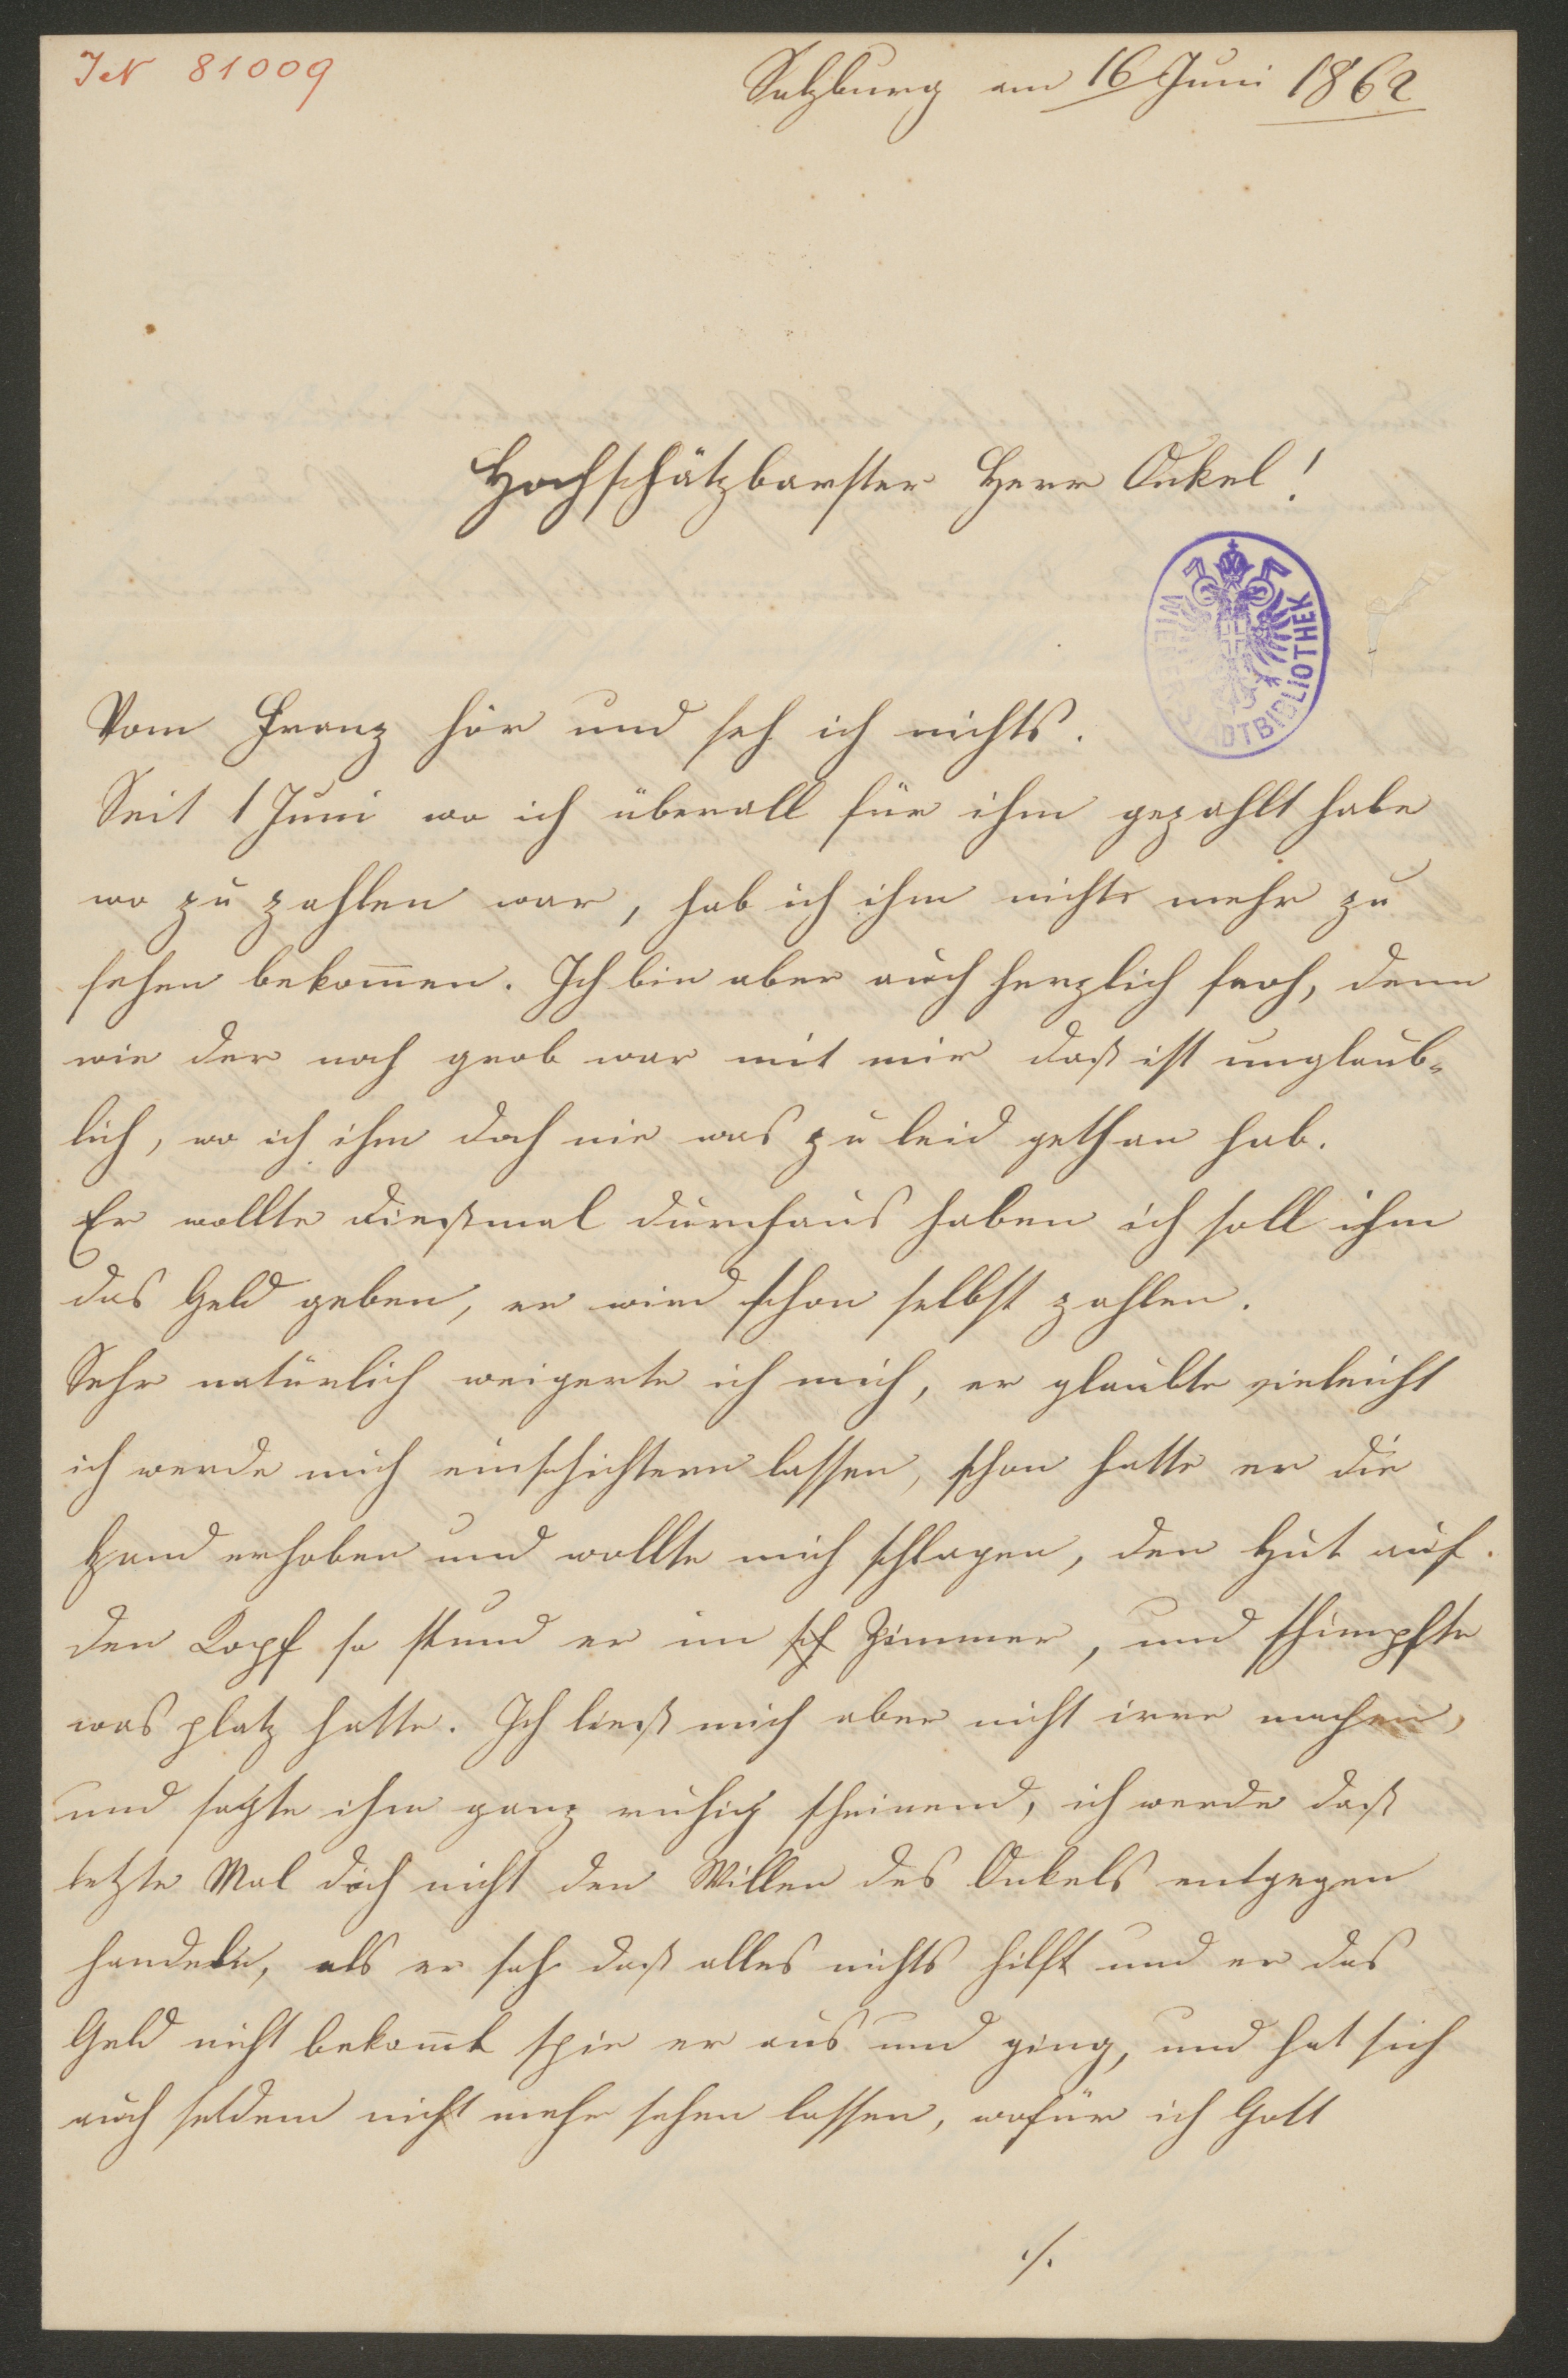 IN 81009
Salzburg am 16 Juni 1862
Hochschätzbarster Herr Onkel!
WIENER STADTBIBLIOTHEK
Vom Franz hör und seh ich nichts.
Seit 1 Juni wo ich überall für ihm gezahlt habe
wo zu zahlen war, hab ich ihm nichts mehr zu
sehen bekom̅en. Ich bin aber auch herzlich froh, denn
wie der noch grob war mit mir daß ist unglaub-
lich, wo ich ihm doch nie was zu leid gethan hab.
Er wollte dießmal durchaus haben ich soll ihm
das Geld geben, er wird schon selbst zahlen.
Sehr natürlich weigerte ich mich, er glaubte vieleicht
ich werde mich einschichtern lassen, schon hatte er die
Hand erhoben und wollte mich schlagen, den Hut auf
den Kopf so stund er im sch Zimmer, und schimpfte
was platz hatte. Ich ließ mich aber nicht irre machen,
und sagte ihm ganz ruhig scheinend, ich werde daß
letzte Mal doch nicht den Willen des Onkels entgegen
handeln, als er sah daß alles nichts hilft und er das
Geld nicht bekom̅t spie er aus und ging, und hat sich
auch seitdem nicht mehr sehen lassen, wofür ich Gott
./.